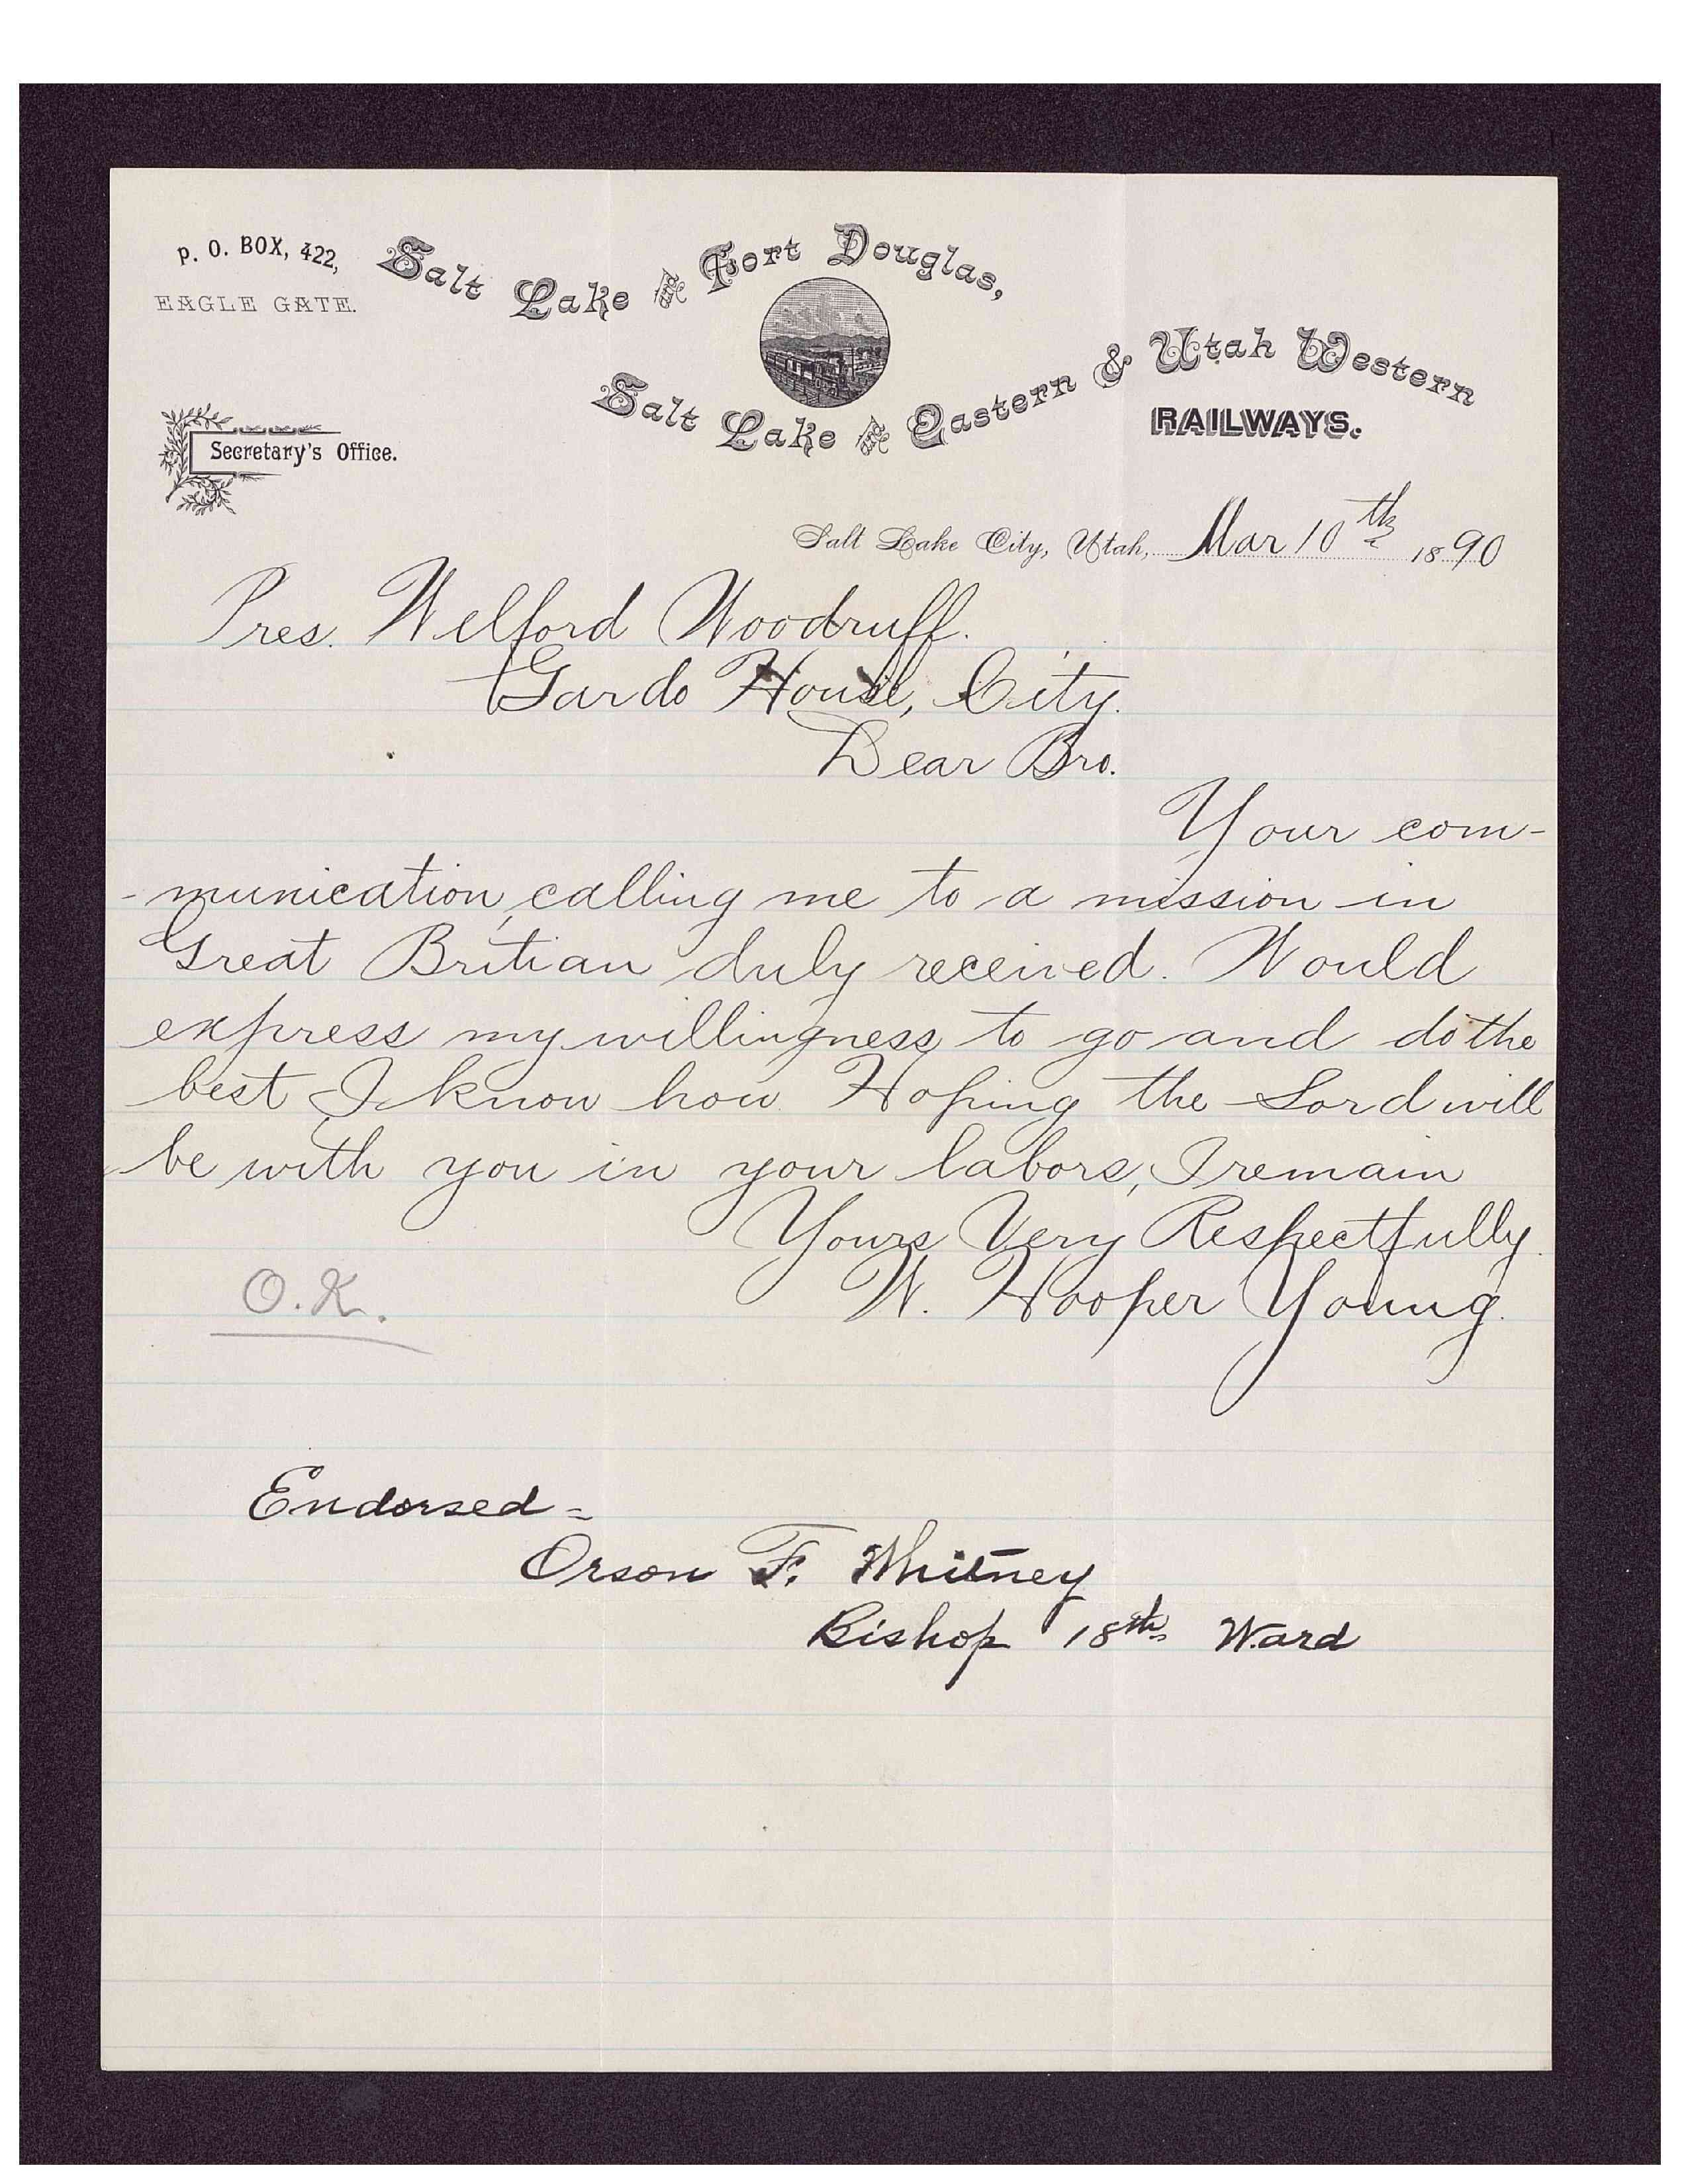 P. O. BOX, 422,
EAGLE GATE.
Salt Lake and Fort Douglas,
Salt Lake and Eastern & Utah Western
RAILWAYS.
Secretary's Office.
Salt Lake City, Utah, Mar 10th 1890
Pres. Welford Woodruff.
Gardo House, City.
Dear Bro.
Your com-
-munication, calling me to a mission in
Great Britian duly received. Would
express my willingness to go and do the
best I know how. Hoping the Lord will
be with you in your labors, I remain
Yours Very Respectfully.
W. Hooper Young.
O.K.
Endorsed =
Orson F. Whitney
Bishop 18th Ward